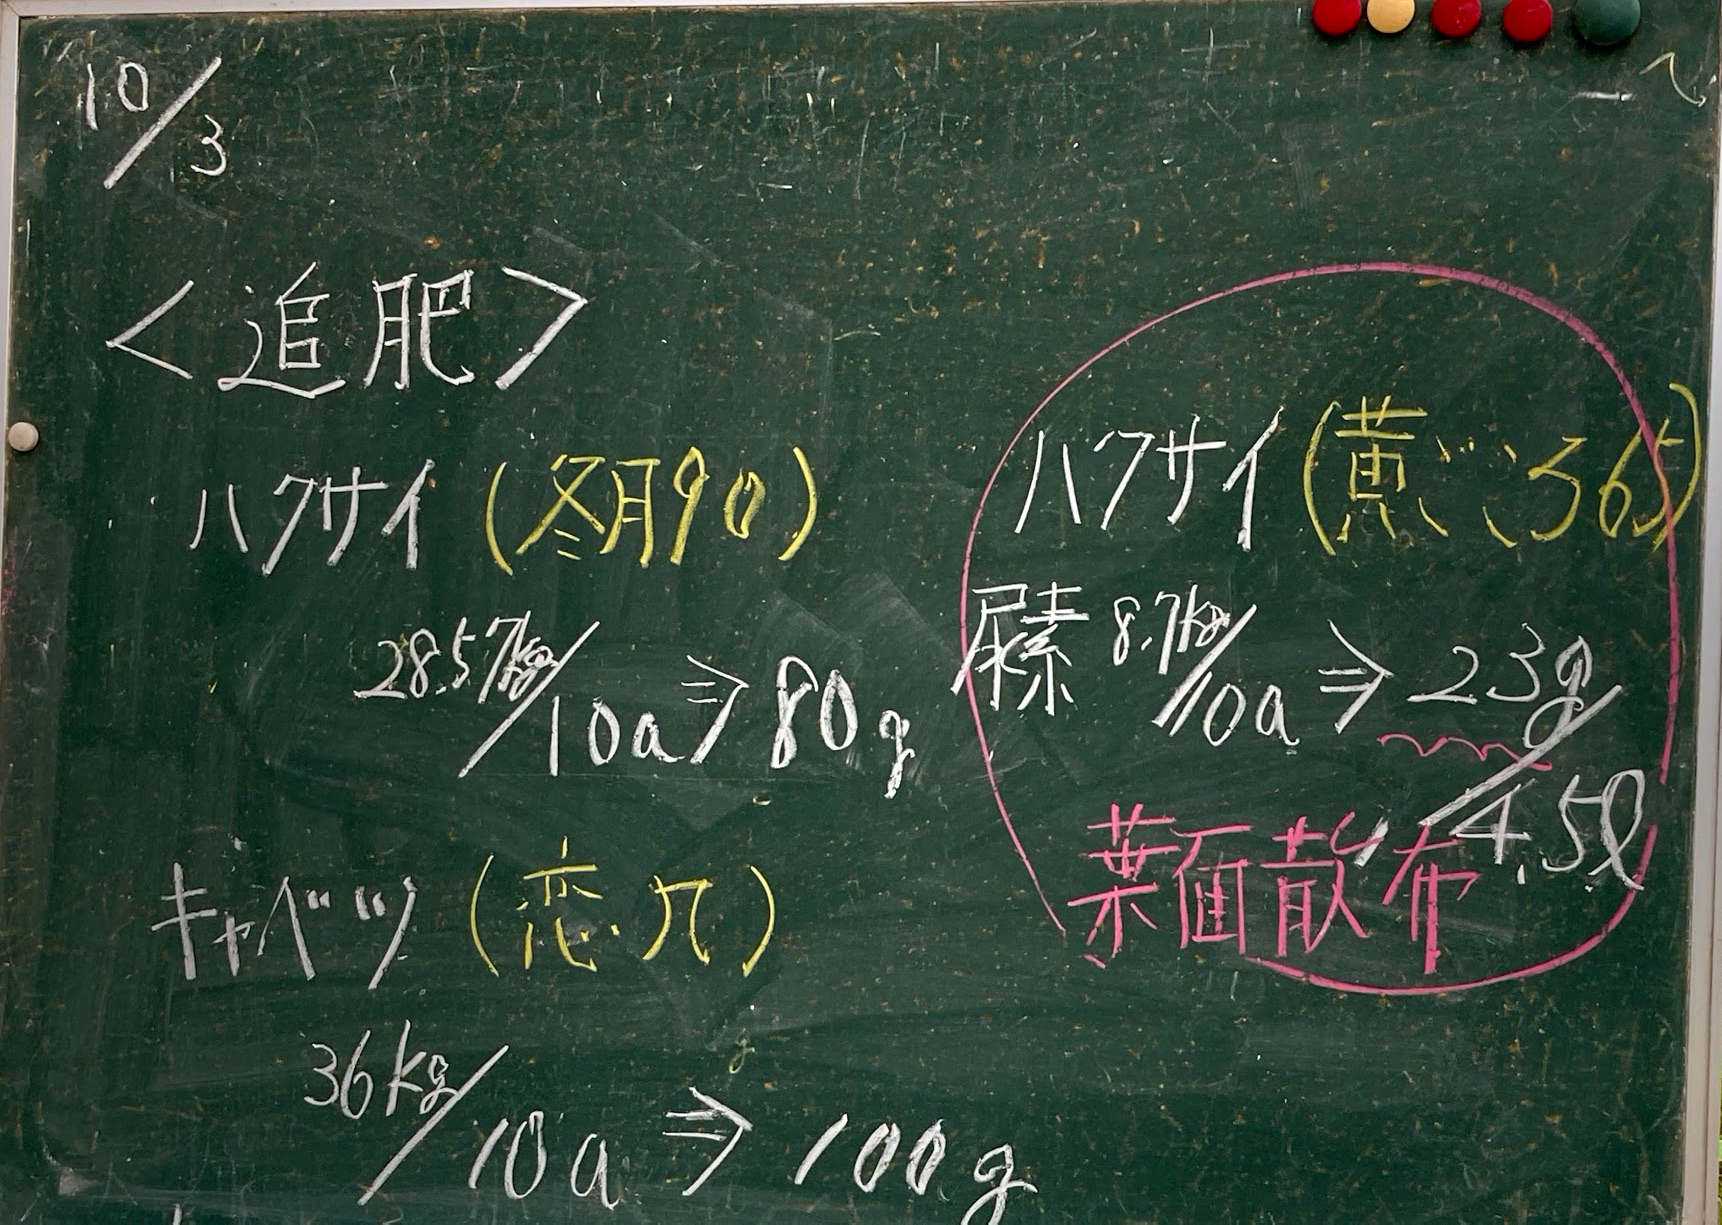 10/3
<追肥>
ハクサイ (冬月90)
28.57kg/10a⇒80g
キャベツ (恋・穴)
36kg/10a⇒100g
ハクサイ (黄ごころ65)
尿素 8.7kg/10a⇒23g/4.5ℓ
葉面散布